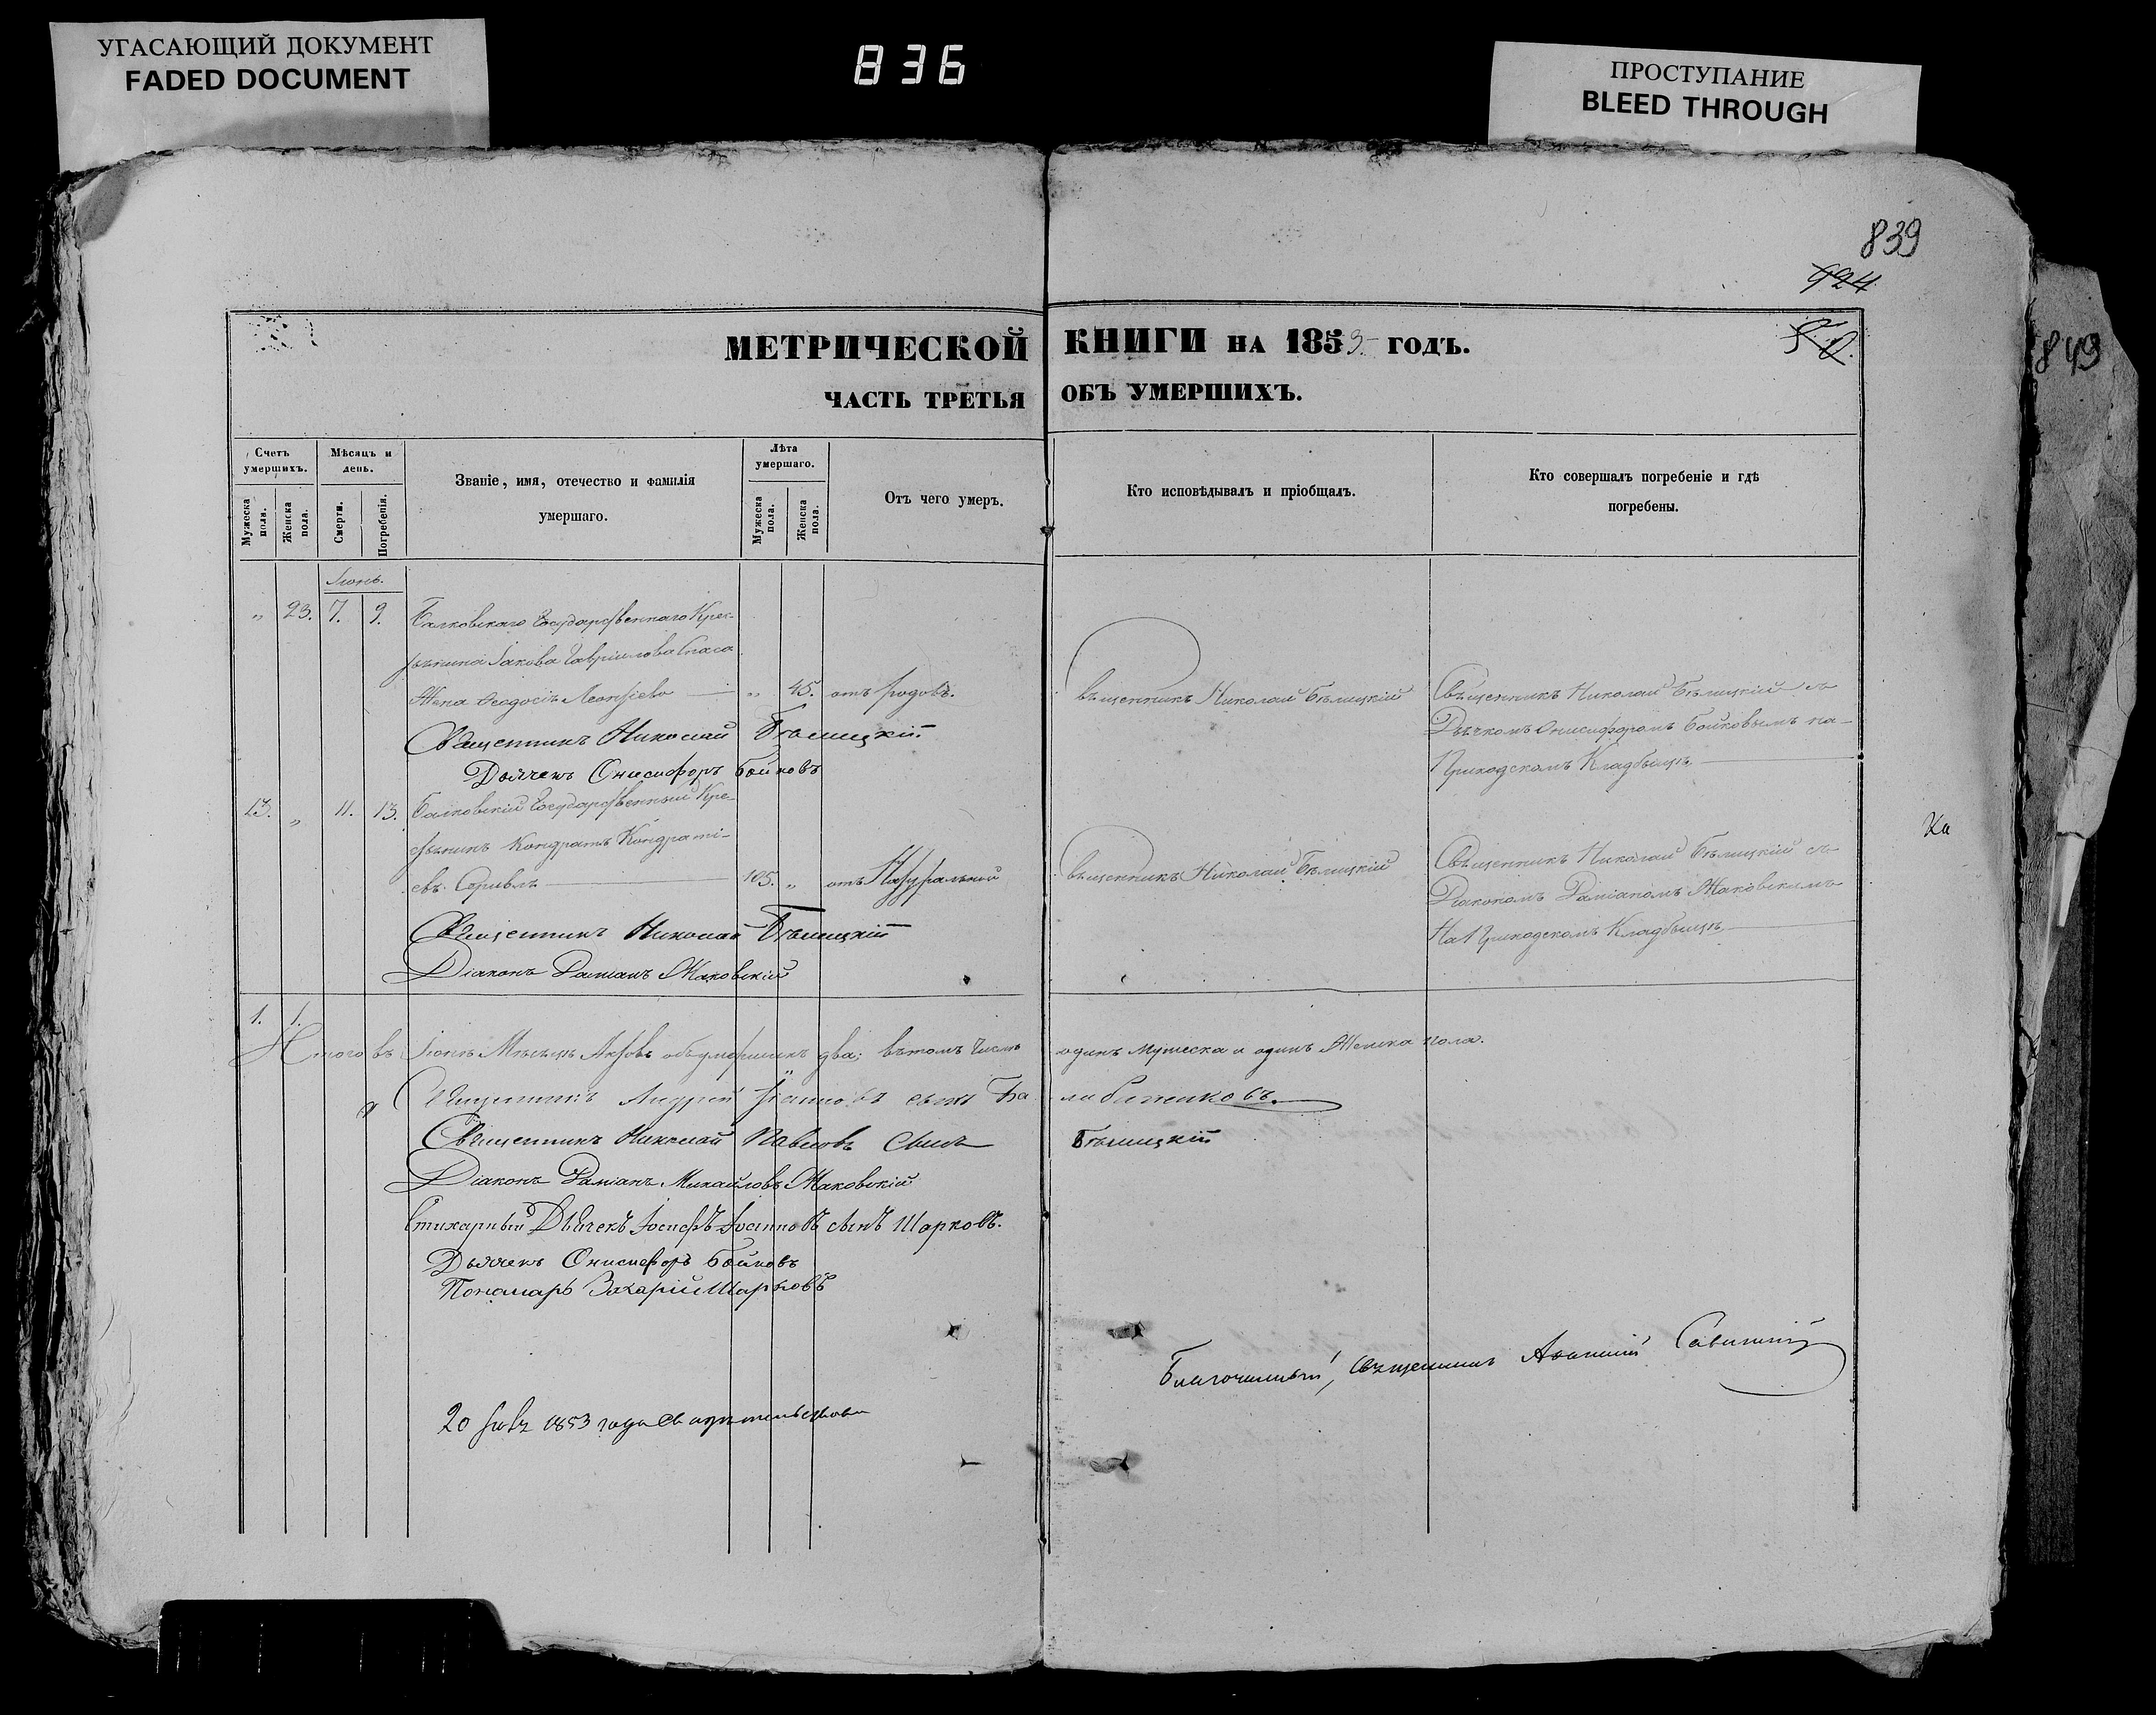 УГАСАЮЩИЙ ДОКУМЕНТ
FADED DOCUMENT
836
ПРОСТУПАНИЕ
BLEED THROUGH
839
924
849
МЕТРИЧЕСКОЙ КНИГИ НА 1853 ГОДЪ.
ЧАСТЬ ТРЕТЬЯ ОБЪ УМЕРШИХЪ.
Счетъ умершихъ.
Мужеска пола.
Женска пола.
Мѣсяцъ и день.
Смерти.
Погребенія.
Званіе, имя, отечество и фамилія
умершаго.
Лѣта умершаго.
Мужеска пола.
Женска пола.
Отъ чего умеръ.
Кто исповѣдывалъ и пріобщалъ.
Кто совершалъ погребеніе и гдѣ
погребены.
Іюнь.
„ 23. 7. 9. Балковскаго Государственнаго Крес-
тьянина Іакова Гавріилова Спаса
Жена Ѳеодосія Леонтіева — „ 45. отъ родовъ.
Священникъ Николай Бѣлицкій
Священникъ Николай Бѣлицкій съ
Дьячкомъ Онисифоромъ Бойковымъ на
Приходскомъ Кладбищѣ
Священникъ Николай Бѣлицкій
Дьячекъ Онисифоръ Бойковъ
13. „ 11. 13. Балковскій Государственный Кре-
стьянинъ Кондратъ Кондраті-
евъ 105. „ отъ Натуральной
Священникъ Николай Бѣлицкій
Священникъ Николай Бѣлицкій съ
Діакономъ Даміаномъ Маковскимъ
На Приходскомъ Кладбищѣ
Священникъ Николай Бѣлицкій
Діаконъ Даміанъ Маковскій
1. 1.
Итого въ Іюнѣ Мѣсяцѣ Актовъ объ умершихъ два; въ томъ числѣ одинъ Мужеска и одинъ Женска пола.
Священникъ Андрей Іоанновъ сынъ
Священникъ Николай Павловъ Сынъ Бѣлицкій
Діаконъ Даміанъ Михайловъ Маковскій
Стихарный Дьячекъ Іосифъ Іоанновъ сынъ Шарковъ.
Дьячекъ Онисифоръ Бойковъ
Пономарь Захарій Шарковъ
Благочинный, Священникъ Савицкій
20 1853 года Свидѣтельствовалъ